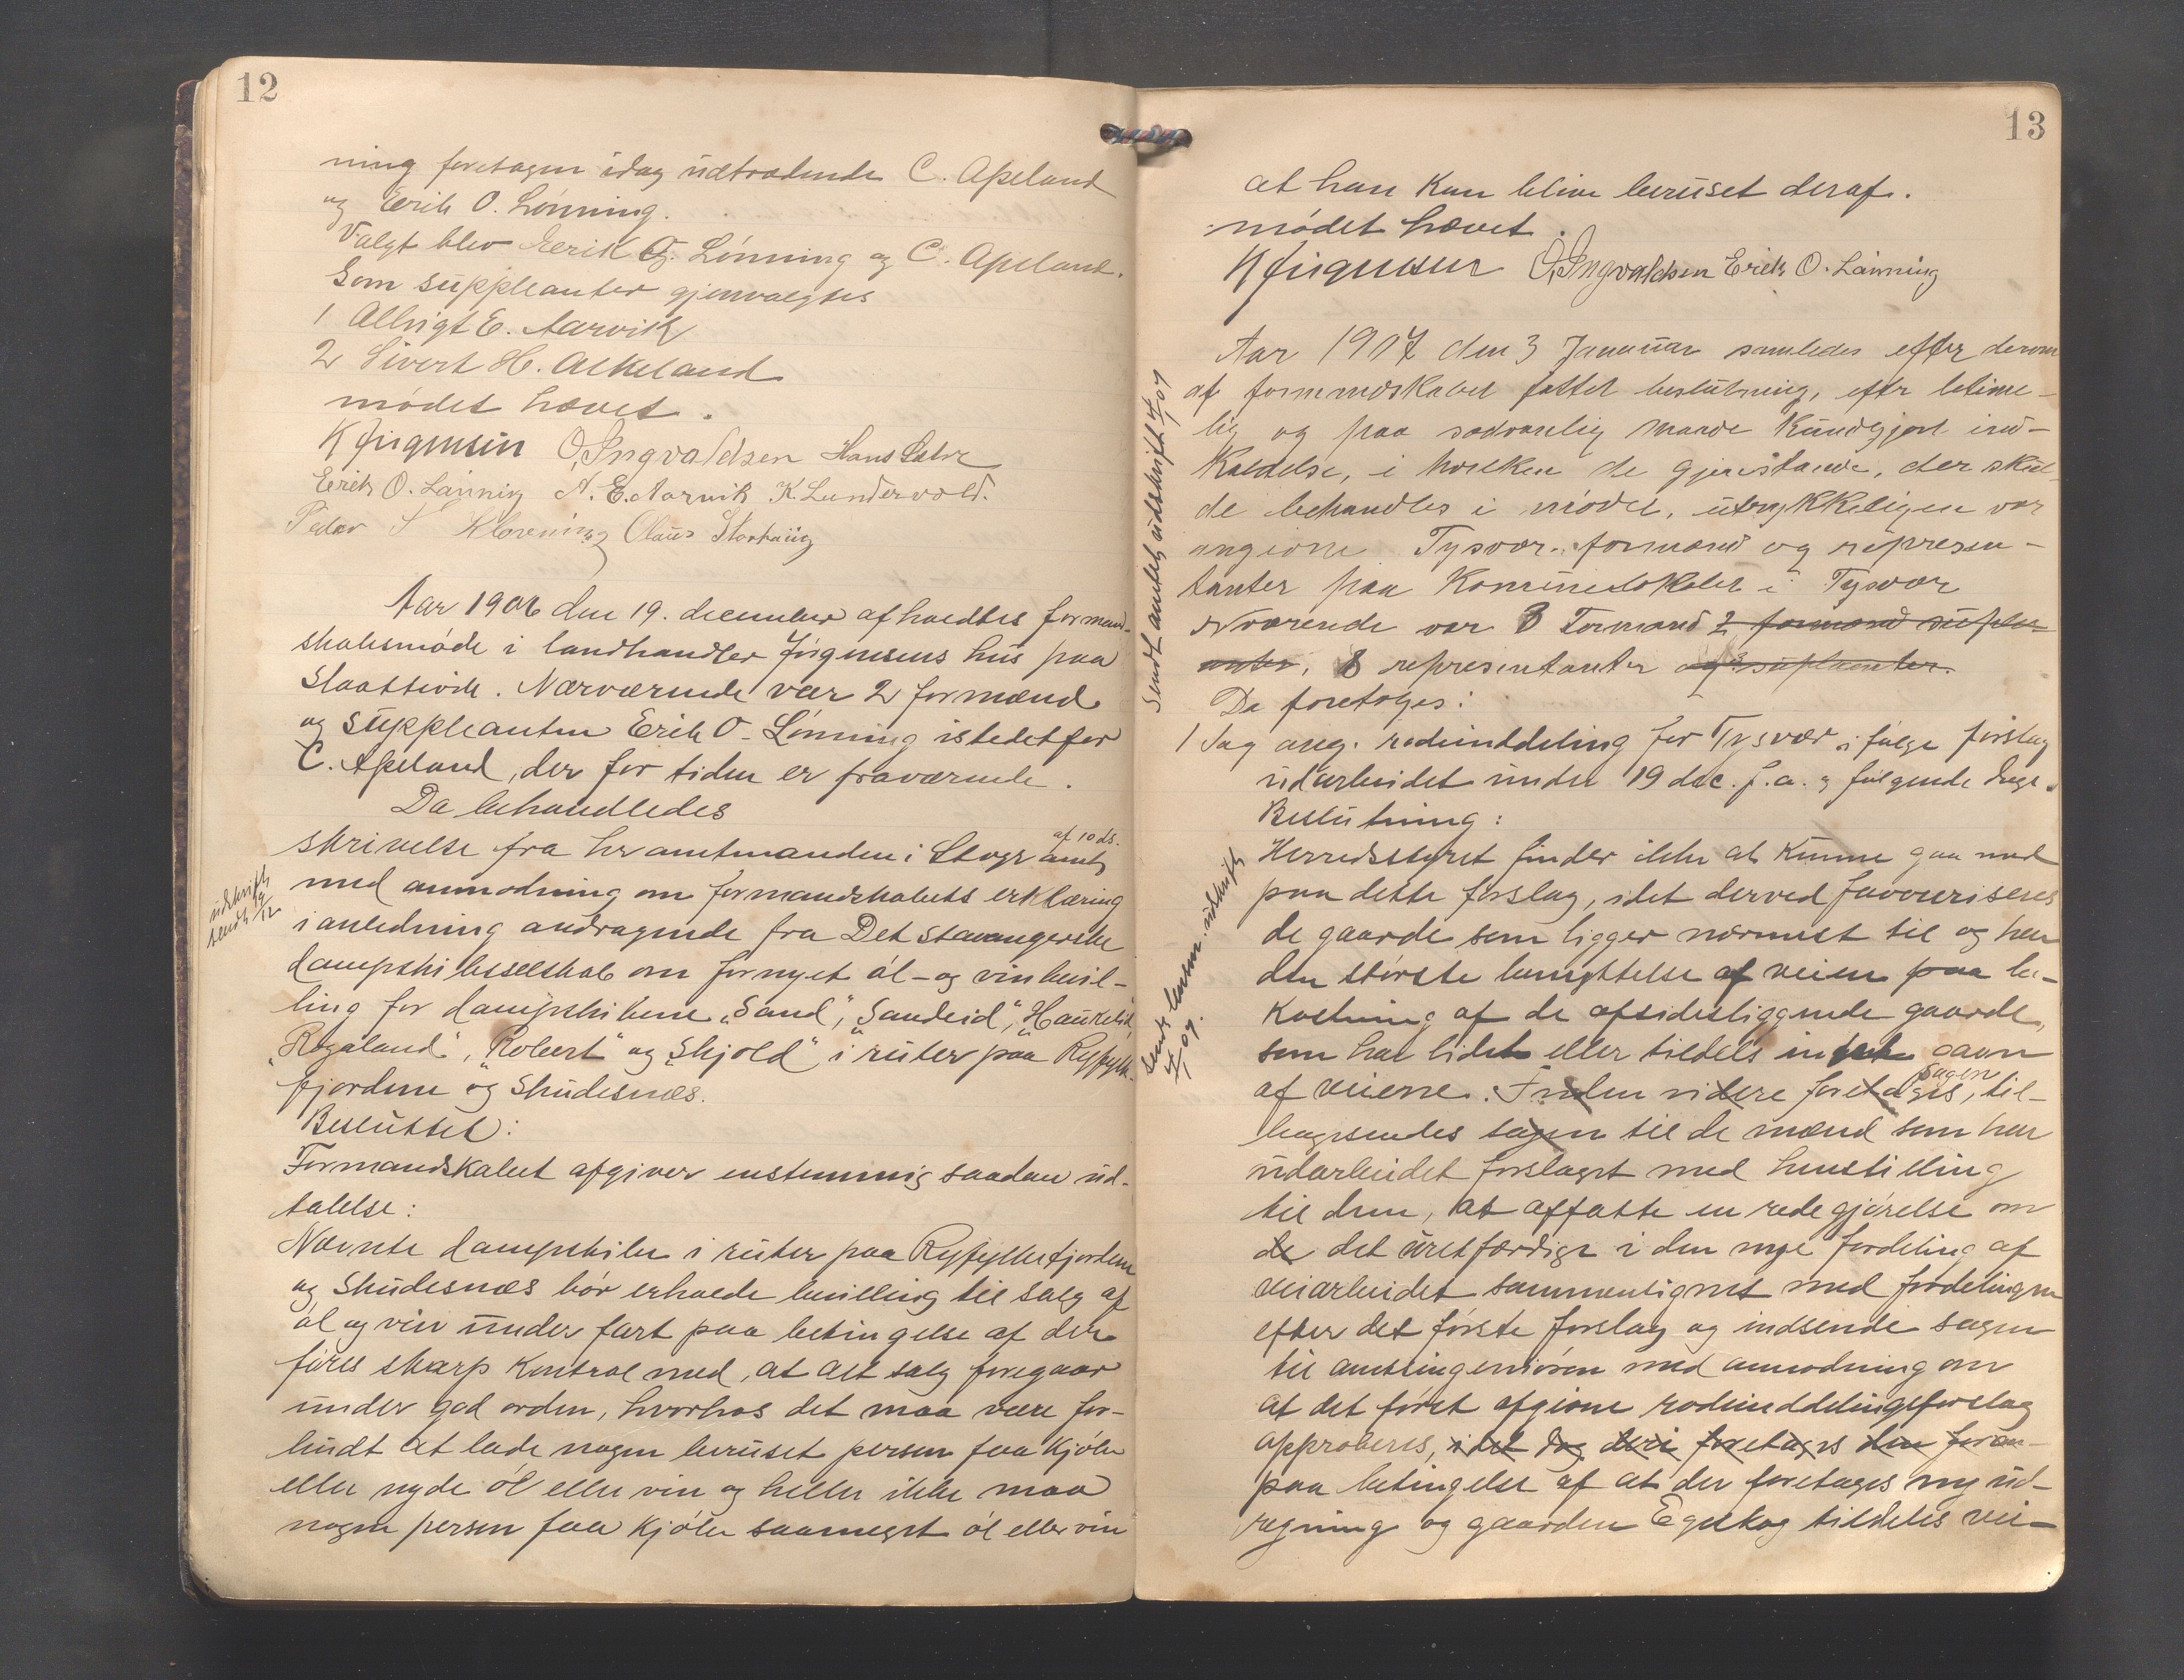 12
ning foretagen idag udtrædende C. Apeland
og Erik O. Lønning.
Valgt blev Eerik O. Lønning og C. Apeland.
Som suppleanter gjenvalgtes
1 Allrigt E. Aarvik
2 Sivert H. Alkeland
mødet hævet.
K Jørgensen O, Ingvaldsen Hans Sæbø
Erik O. Lønning A. E. Aarvik K. Lundervold.
Peder S Klovning Olaus Storhaug
Aar 1906 den 19. december afholdtes formand-
skabsmøde i landhandler Jørgensens hus paa
Slaattevik. Nærværende var 2 formænd
og suppleanten Erik O. Lønning istedetfor
C. Apeland, der for tiden er fraværende.
Da behandledes
skrivelse fra hr amtmanden i Stvgr amt af 10 ds.
med anmodning om formandskabets erklæring
udskrift
sendt 19/12
i anledning andragende fra Det stavangerske
dampskibsselskab om fornyet øl- og vinbevil-
ling for dampskibene „Sand“, „Sandeid“, „Haukelid“
„Rogaland“, „Robert“ og „Skjold“ i ruter paa Ryfylke-
fjordene og Skudesnæs.
Besluttet:
Formandskabet afgiver enstemmig saadan ud-
talelse:
Nævnte dampskibe i ruter paa Ryfylkefjordene
og Skudesnæs bør erholde bevilling til salg af
øl og vin under fart paa betingelse af der
føres skarp kontrol med, at alt salg foregaar
under god orden, hvorhos det maa være for-
budt at lade nogen beruset person faa kjøbe
eller nyde øl eller vin og heller ikke maa
nogen person faa kjøbe saameget øl eller vin
13
at han kan blive beruset deraf.
mødet hævet.
K Jørgensen O, Ingvaldsen Erik O. Lønning
Sendt amtet udskrift 4/1 07
Aar 1907 den 3 Januar samledes efter derom
af formandskabet fattet beslutning, efter betime-
lig og paa sædvanlig maade kundgjort ind-
kaldelse, i hvilken de gjenstande, der skul-
de behandles i mødet, udtrykkeligen var
angivne Tysvær formænd og represen-
tanter paa Komunelokalet i Tysvær
Nværende var 3 Formænd 2 formænd suple-
anter, 8 representanter og suplanter.
Da foretoges:
1 Sag ang. rodeinddeling for Tysvær ifølge forslag
udarbeidet under 19 dec. f.a. og følgende dage.
Beslutning:
Herredsstyret finder ikke at kunne gaa med
paa dette forslag, idet derved favouriseres
de gaarde som ligger nærmest til og har
den største benyttelse af veien paa be-
kostning af de afsidesliggende gaarde,
som har lidet eller tildels intet gavn
Sendt udskrift
4/1 07.
af veiene. Inden videre foretages, Sagen til-
bagesendes sagen til de mænd som har
udarbeidet forslaget med henstilling
til dem, at affatte en redegjørelse om
de det uretfærdige i den nye fordeling af
veiarbeidet sammenlignet med fordelingen
efter det første forslag og indsende sagen
til amtsingeniøren med anmodning om
at det først afgivne rodeinddelingsforslag
approberes, idet dog deri foretages den foran-
paa betingelse af at der foretages ny ud-
regning og gaarden Egeskog tildeles vei-